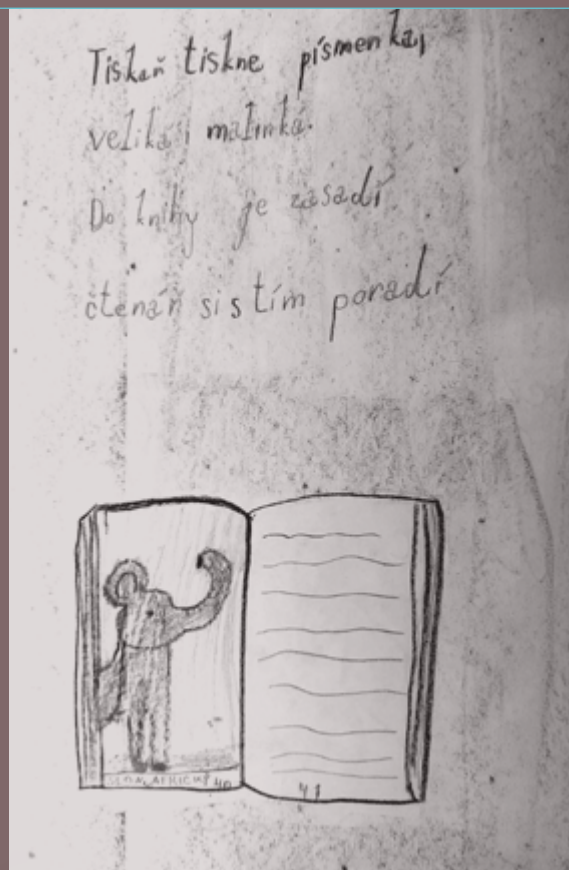 Tiskař tiskne písmenka,
velika i malinká.
Do knihy je zasadí
čtenář si s tím poradí.
SLON AFRICKÝ 40
41